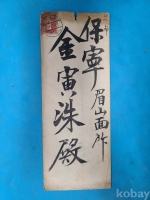 保寧 眉山面 ⿰
金寅洙殿
kobay